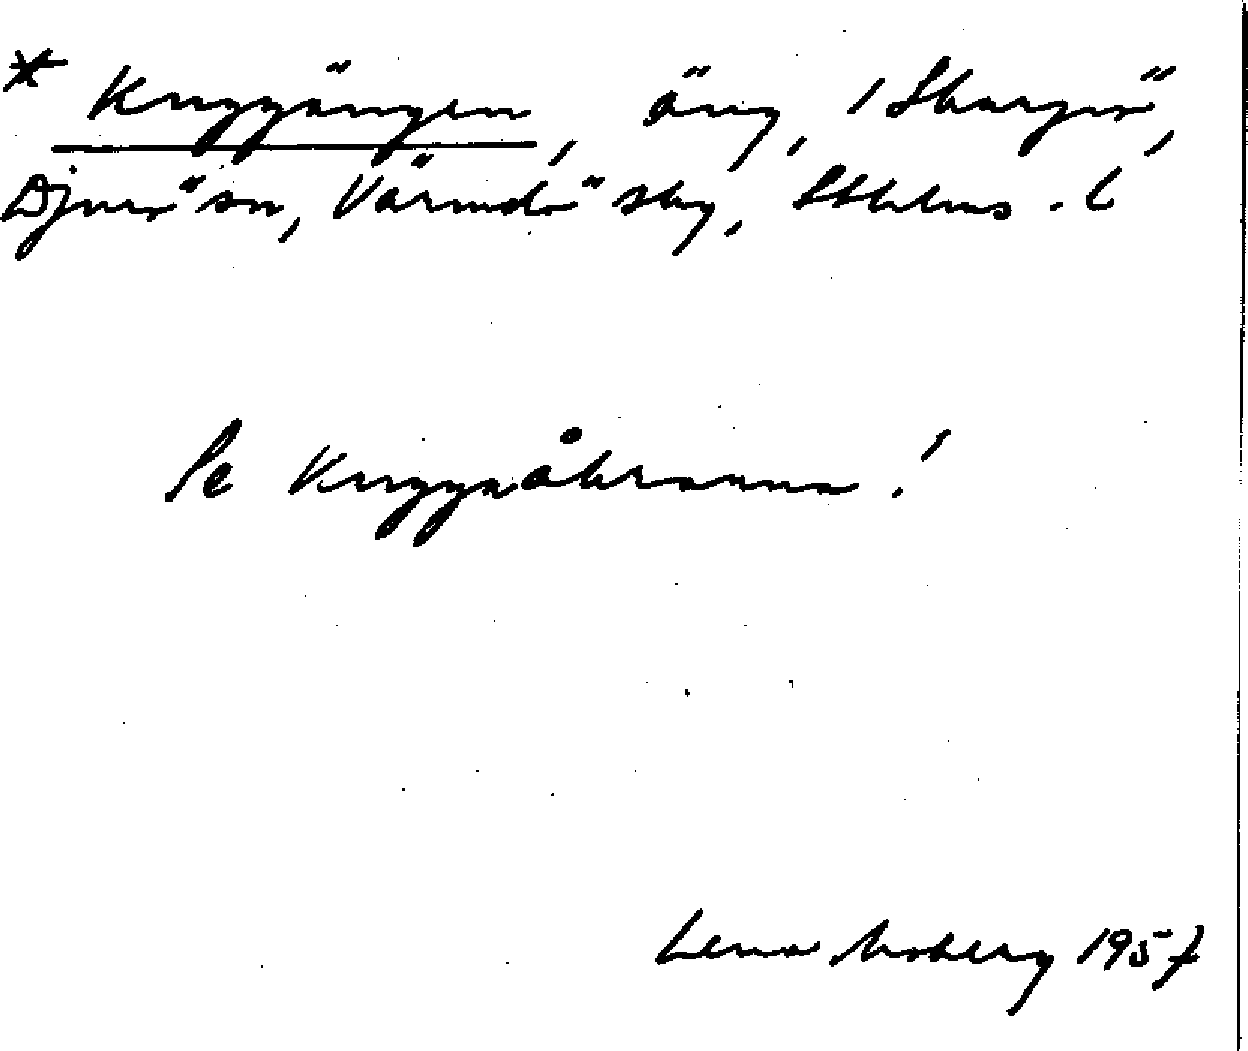 * Kruggängen, äng, i Skarpö,
Djurö sn, Värmdö skg, Sthlms l
Se Kruggaåkrarna!
Lena Moberg 1957